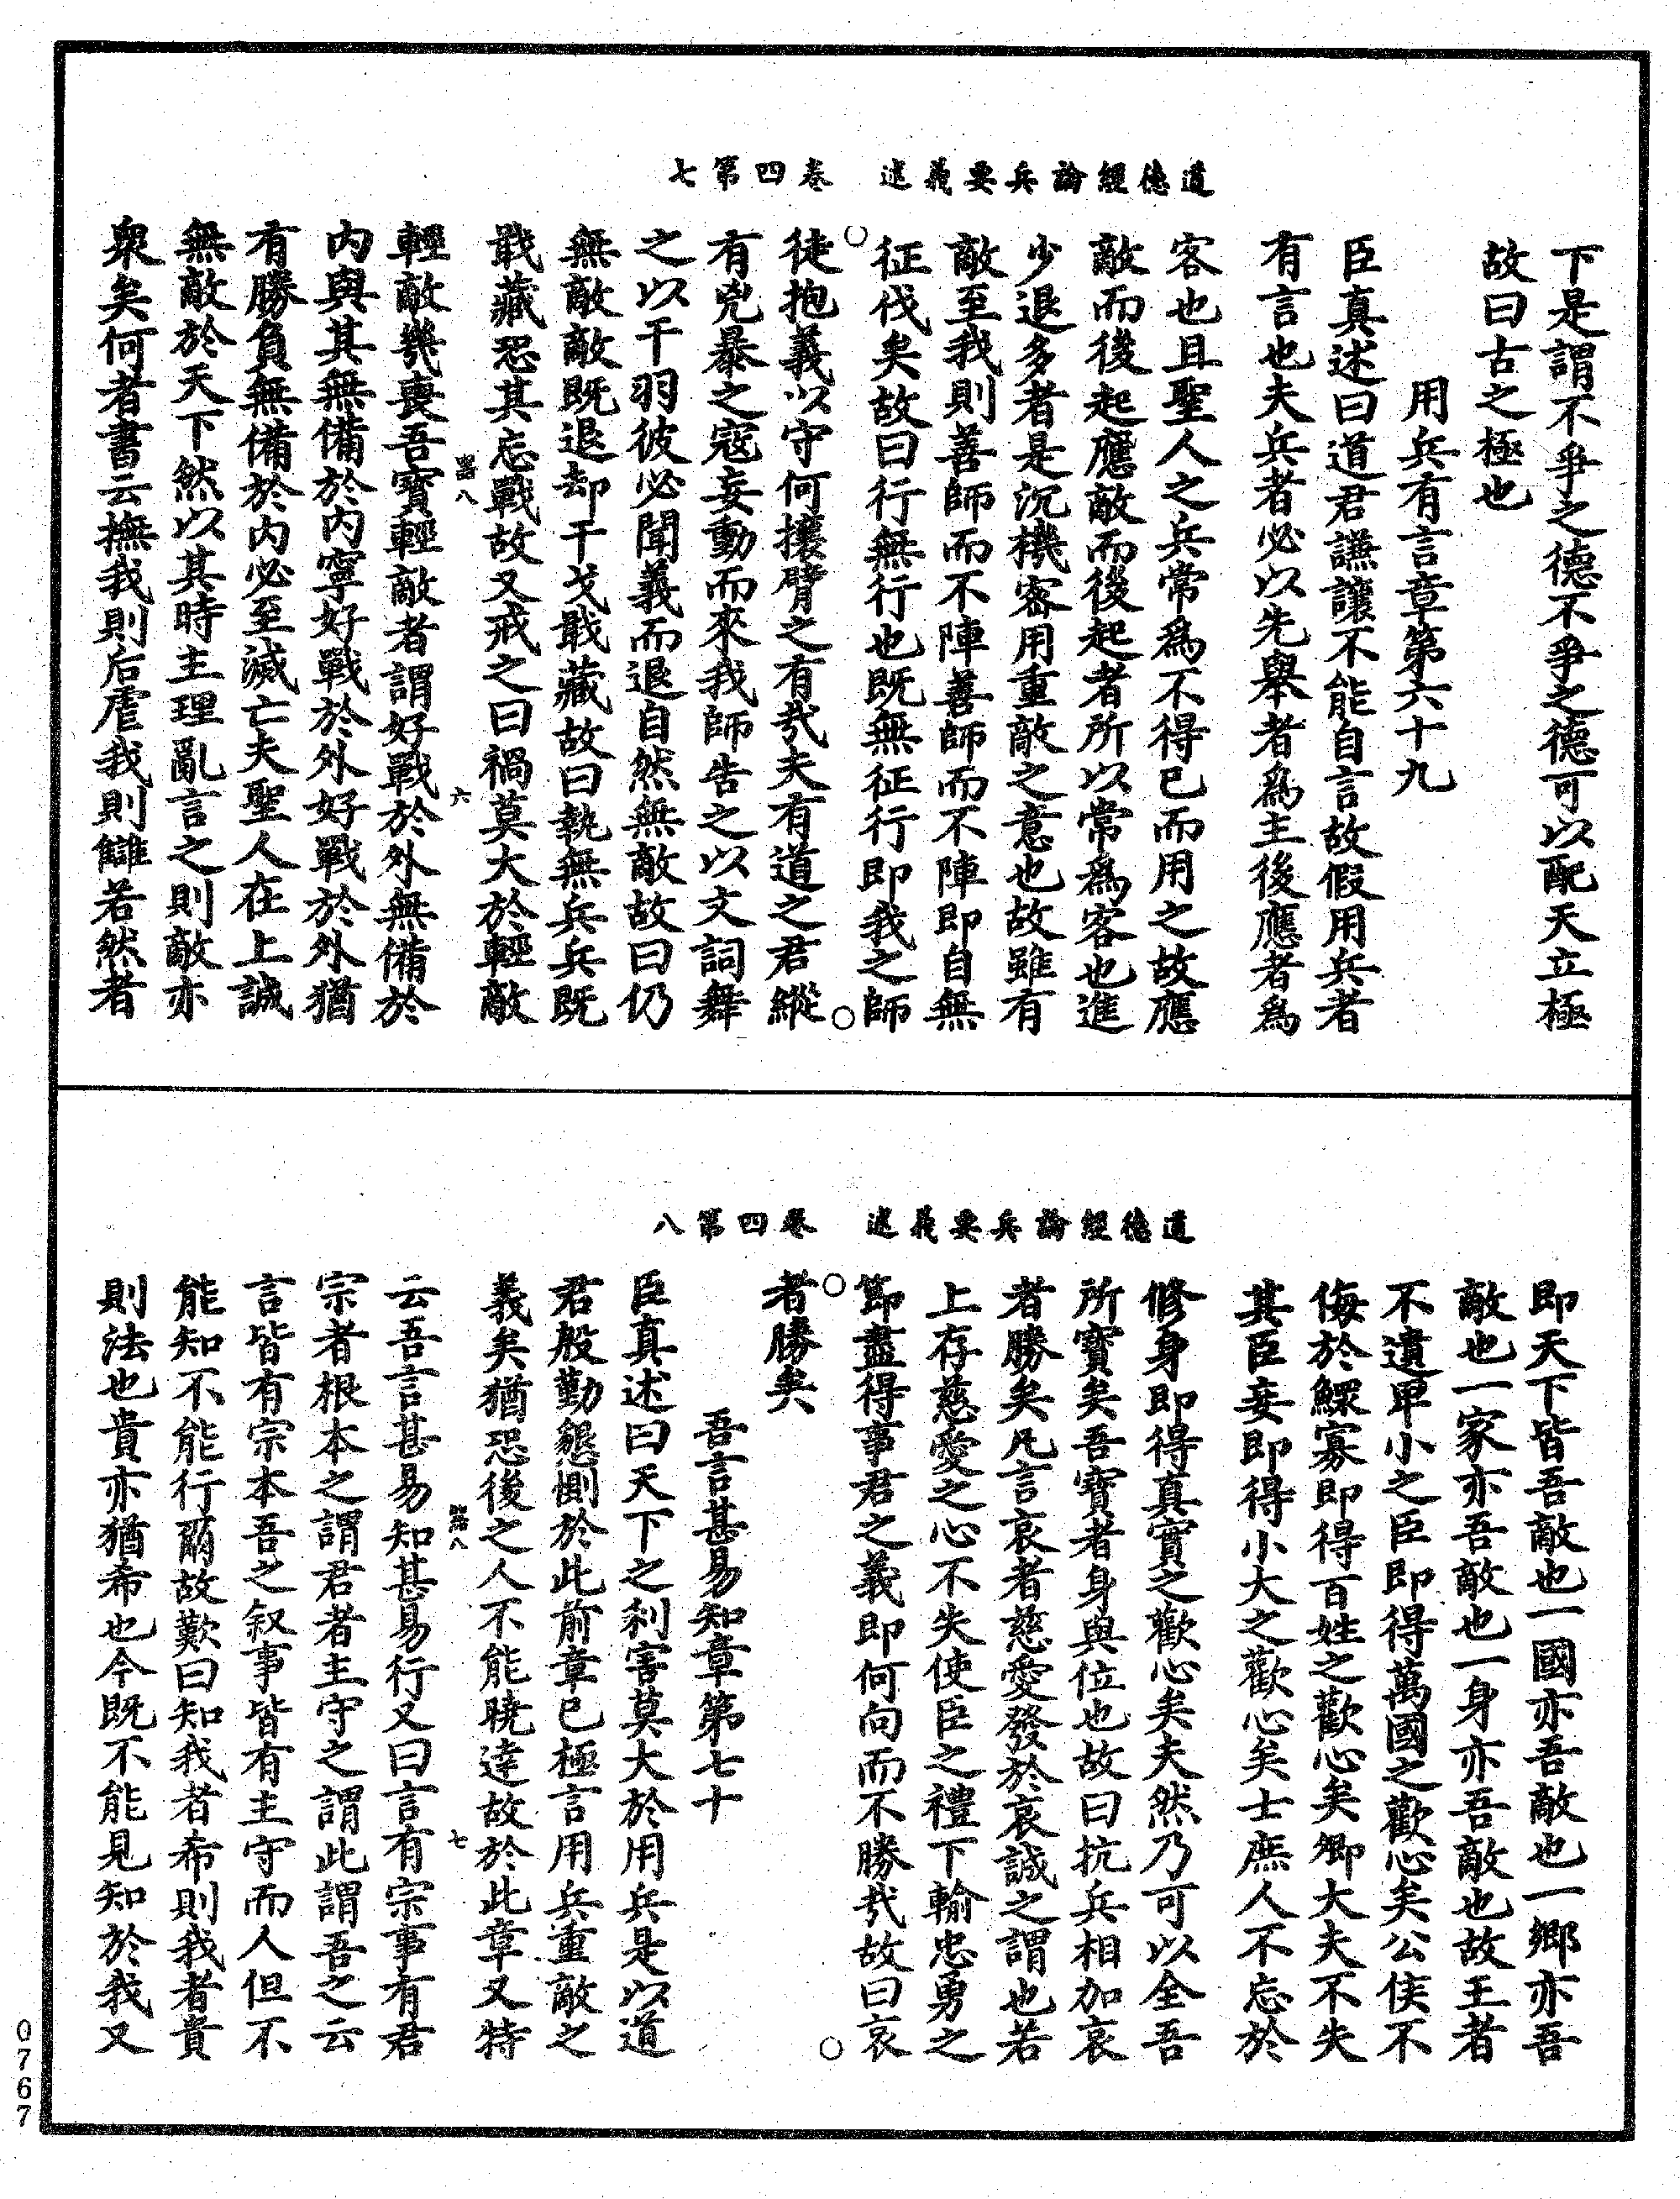 道德經論兵要義述　卷四第七
下是謂不爭之德不爭之德可以配天立極
故曰古之極也
用兵有言章第六十九
臣真述曰道君謙讓不能自言故假用兵者
有言也夫兵者必以先舉者為主後應者為
客也且聖人之兵常為不得已而用之故應
敵而後起應敵而後起者所以常為客也進
少退多者是沉機密用重敵之意也故雖有
敵至我則善師而不陣善師而不陣即自無
征伐矣故曰行無行也既無征行即我之師
徒抱義以守何攘臂之有哉夫有道之君縱
有兇暴之寇妄動而來我師告之以文詞舞
之以干羽彼必聞義而退自然無敵故曰仍
無敵敵既退却干戈戢藏故曰執無兵兵既
戢藏恐其忘戰故又戒之曰禍莫大於輕敵
六
輕敵幾喪吾寶輕敵者謂好戰於外無備於
內與其無備於內寧好戰於外好戰於外猶
有勝負無備於內必至滅亡夫聖人在上誠
無敵於天下然以其時主理亂言之則敵亦
衆矣何者書云撫我則后虐我則讎若然者
道德經論兵要義述　卷四第八
即天下皆吾敵也一國亦吾敵也一鄉亦吾
敵也一家亦吾敵也一身亦吾敵也故王者
不遺卑小之臣即得萬國之歡心矣公侯不
侮於鰥寡即得百姓之歡心矣卿大夫不失
其臣妾即得小大之歡心矣士庶人不忘於
修身即得真實之歡心矣夫然乃可以全吾
所寶矣吾寶者身與位也故曰抗兵相加哀
者勝矣凡言哀者慈愛發於哀誠之謂也若
上存慈愛之心不失使臣之禮下輸忠勇之
節盡得事君之義即何向而不勝哉故曰哀
者勝矣
吾言甚易知章第七十
臣真述曰天下之利害莫大於用兵是以道
君殷勤懇惻於此前章已極言用兵重敵之
義矣猶恐後之人不能曉達故於此章又特
七
云吾言甚易知甚易行又曰言有宗事有君
宗者根本之謂君者主守之謂此謂吾之云
言皆有宗本吾之叙事皆有主守而人但不
能知不能行爾故歎曰知我者希則我者貴
則法也貴亦猶希也今既不能見知於我又
0767